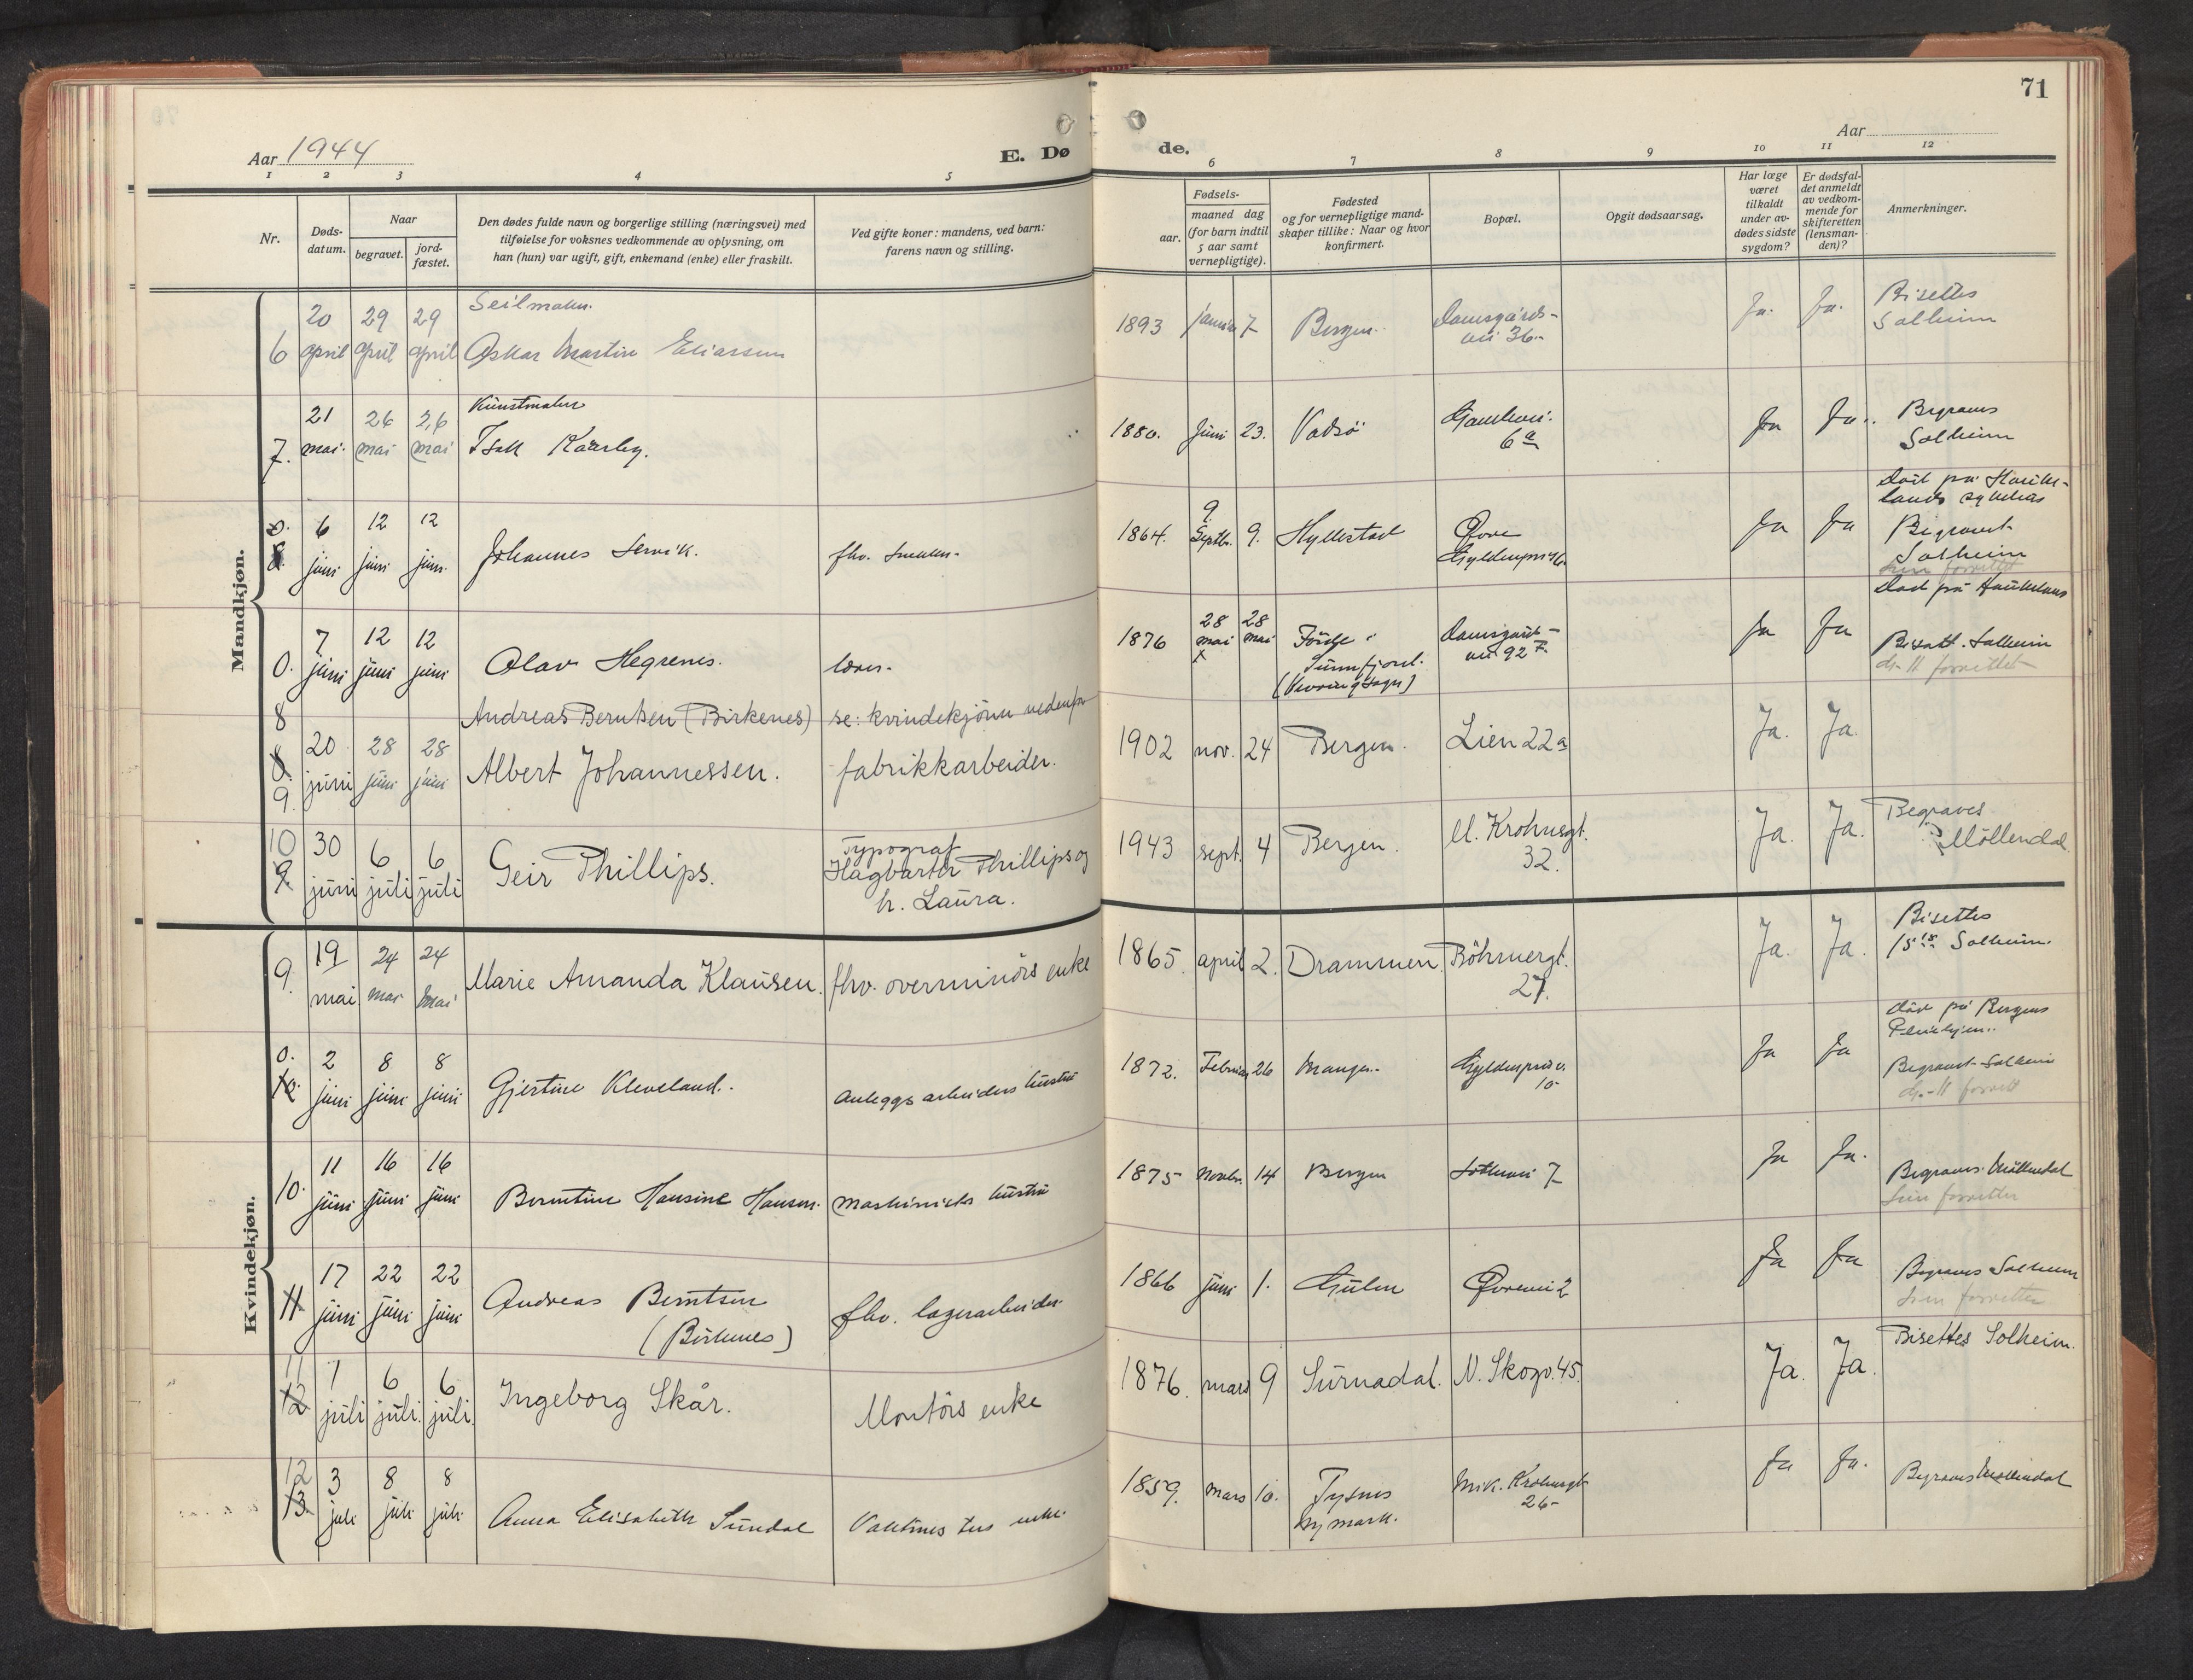 71
Aar 1944
E. Dø
de.
Aar
1 2 3 4 5 6 7 8 9 10 11 12
Nr.
Døds-
datum.
Naar
begravet.
jord-
fæstet.
Den dødes fulde navn og borgerlige stilling (næringsvei) med
tilføielse for voksnes vedkommende av oplysning, om
han (hun) var ugift, gift, enkemand (enke) eller fraskilt.
Ved gifte koner: mandens, ved barn:
farens navn og stilling.
Fødsels-
aar.
maaned dag
(for barn indtil
5 aar samt
vernepligtige).
Fødested
og for vernepligtige mand-
skaper tillike: Naar og hvor
konfirmert.
Bopæl.
Opgit dødsaarsag.
Har læge
været
tilkaldt
under av-
dødes sidste
sygdom?
Er dødsfal-
det anmeldt
av vedkom-
mende for
skifteretten
(lensman-
den)?
Anmerkninger.
Mandkjøn.
Seilmaker.
6 20 april 29 april 29 april Oskar Martin Eliassen 1893 januar 7 Bergen. Damsgårds-
vei 36. Ja. Ja. Bisettes
Solheim
Kunstmaler
7. 21 mai. 26 mai 26 mai Isak Kaarby. 1880. Juni 23. Vadsö 6a Ja Ja. Begraves
Solheim
0. 8. 6 juni 12 juni 12 juni. Johannes Servik. fhv. 1864. 9. Septbr. 9. Hyllestad Øvre
Gyldenprisv. Ja Ja Död på Hauke-
lands sykehus
Begravet
Solheim
forrettet
0. 7 juni 12 juni 12 juni Olav Hegrenes. lærer. 1876 28 mai x 28 mai Förde i
Sunnfjord.
(Vevring sogn) Damsgårds-
vei 92 Ja Ja Död på Haukeland
Bisatt. Solheim
forrettet
8 Andreas Berntsen (Birkenes) se: kvindekjönn nedenfor
8. 9. 20 juni 28 juni 28 juni Albert Johannessen. fabrikkarbeider. 1902 nov. 24 Bergen. Lien 22a Ja. Ja.
10 9 30 juni 6 juli 6 juli Geir Phillips. Typograf
Hagbarth Phillips og
h. Laura. 1943 sept. 4 Bergen. M. Krohnsgt.
32. Ja. Ja. Begraves
Möllendal
Kvindekjøn.
9. 19 mai 24 mai 24 mai Marie Amanda Klausen. fhv. overminörs enke 1865. april 2. Drammen. Böhmergt.
27. Ja. Ja. Bisettes
15 15 Solheim.
0. 10. 2 juni 8 juni 8 juni Gjertine Kleveland. Anleggsarbeiders hustru 1872. Februar 26 Manger. Gyldenprisv.
10 Ja Ja död på Bergens
Pleiehjem.
Begravet Solheim
10. 11 juni 16 juni 16 juni Berntine Hansine Hansen. Maskinists hustru 1875 Novbr. 14 Bergen 7 Ja Ja. Begraves Möllendal
forretter
11 17 juni 22 juni 22 juni Andreas Berntsen
(Birkenes) fhv. lagerarbeider 1866 juni 1. Gulen 2 Ja Ja Begraves Solheim
forretter
11 12 1 juli 6 juli. 6 juli. Ingeborg Skår. Montörs enke 1876. mars 9 Surnadal. N. Skogv. 45. Ja. Ja. Bisettes Solheim.
12 13. 3 juli 8 juli 8 juli Anna Elisabeth Sundal enke 1859. mars 10. Tysnes
Nymark. Mik. Krohnsgt.
26 Ja Ja. Begraves Möllendal